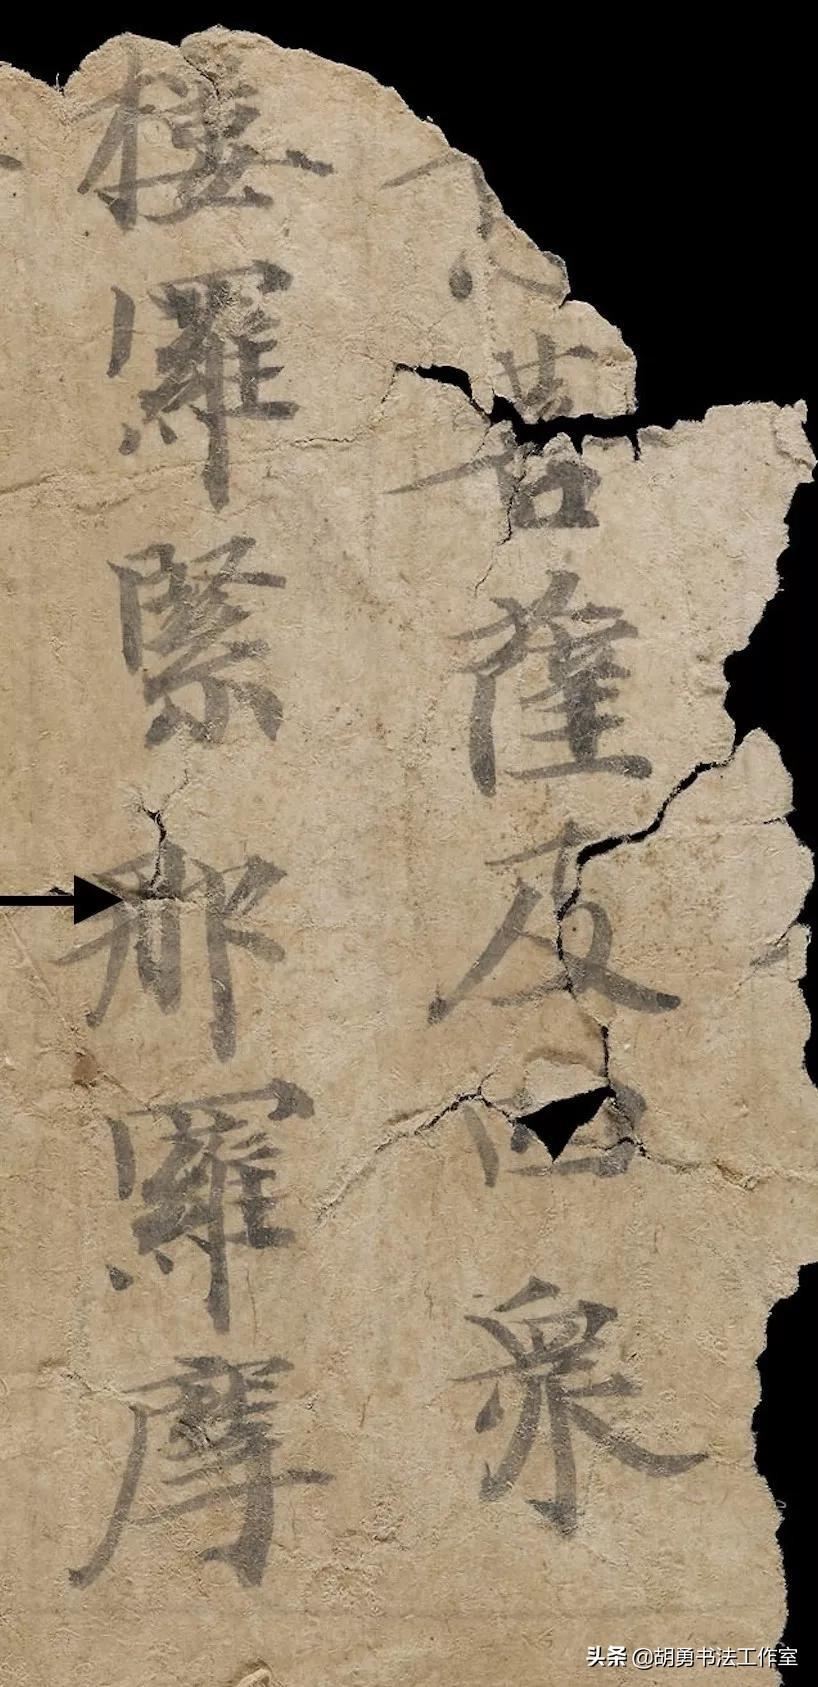 菩薩及四衆
樓羅緊那羅摩
头条 @胡勇书法工作室